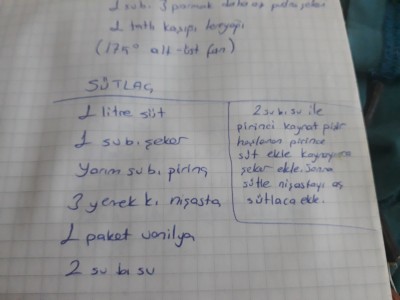 1 su b. 3 parmak daha az pudra şeker
1 tatlı kaşığı tereyağı
(175° alt-üst fan)
SÜTLAÇ
1 litre süt
1 sub. şeker
Yarım sub. pirinç
3 yemek k. nişasta
1 paket vanilya
2 su ba su
2 su b. su ile
pirinci kaynat pişir
haşlanan pirince
süt ekle kaynayınca
şeker ekle. Sonra
sütle nişastayı aç
sütlaca ekle.